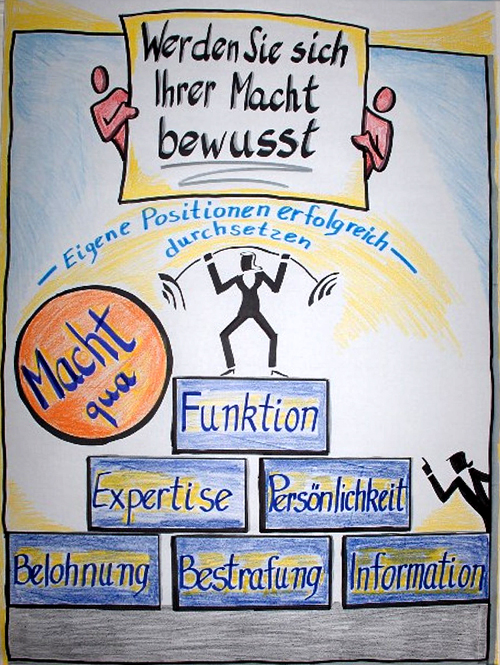 Werden Sie sich
Ihrer Macht
bewusst
– Eigene Positionen erfolgreich –
durchsetzen
Macht
qua
Funktion
Expertise
Persönlichkeit
Belohnung
Bestrafung
Information